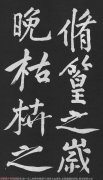 脩篁之歲
晚枯枿之